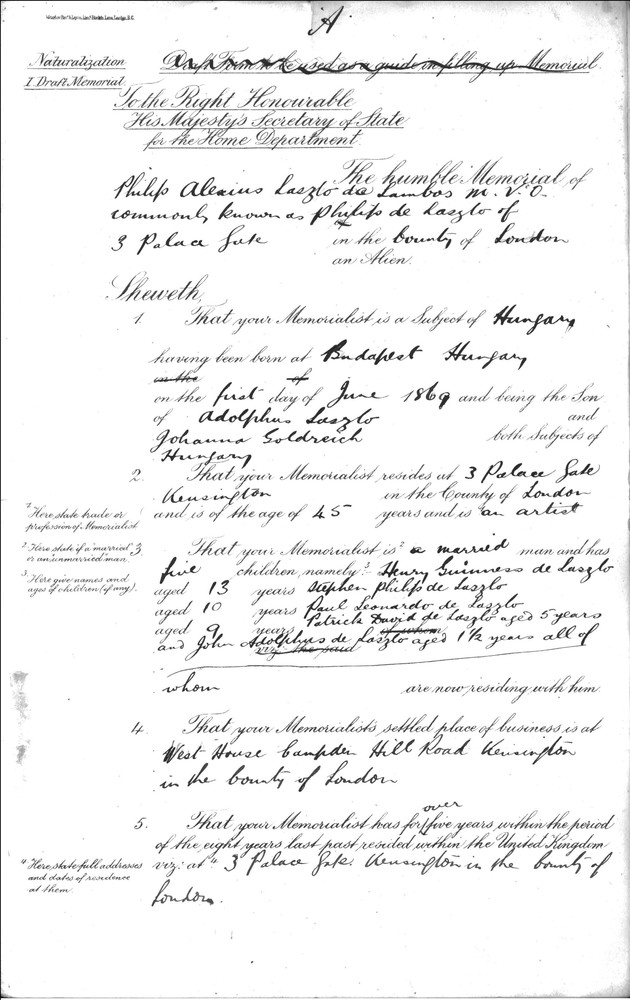 A
Naturalization
I Draft Memorial
Draft Form to be used as a guide in filling up Memorial
To the Right Honourable
His Majesty's Secretary of State
for the Home Department.
The humble Memorial of
Philip Alexius Laszlo de Lombos M.V.O.
commonly known as Philip de Laszlo of
3 Palace Gate in the County of London
an Alien.
Sheweth,
1. That your Memorialist is a Subject of Hungary
having been born at Budapest Hungary
in the of
on the first day of June 1869 and being the Son
of Adolphus Laszlo and
Johanna Goldreich both Subjects of
Hungary
2. That your Memorialist resides at 3 Palace Gate
Kensington in the County of London
and is of the age of 45 years and is ¹ an artist
¹ Here state trade or
profession of Memorialist
3. That your Memorialist is ² a married man and has
five children namely:³ Henry Guinness de Laszlo
aged 13 years Stephen Philip de Laszlo
aged 10 years Paul Leonardo de Laszlo
aged 9 years Patrick David de Laszlo aged 5 years
of whom
and John Adolphus de Laszlo aged 1½ years all of
viz: the said
whom are now residing with him
² Here state if a married
or an unmarried man.
³ Here give names and
ages of children (if any).
4. That your Memorialist's settled place of business is at
West House Campden Hill Road Kensington
in the County of London
5. That your Memorialist has for over five years within the period
of the eight years last past resided within the United Kingdom
viz: at ⁴ 3 Palace Gate. Kensington in the County of
London.
⁴ Here state full addresses
and dates of residence
at them.